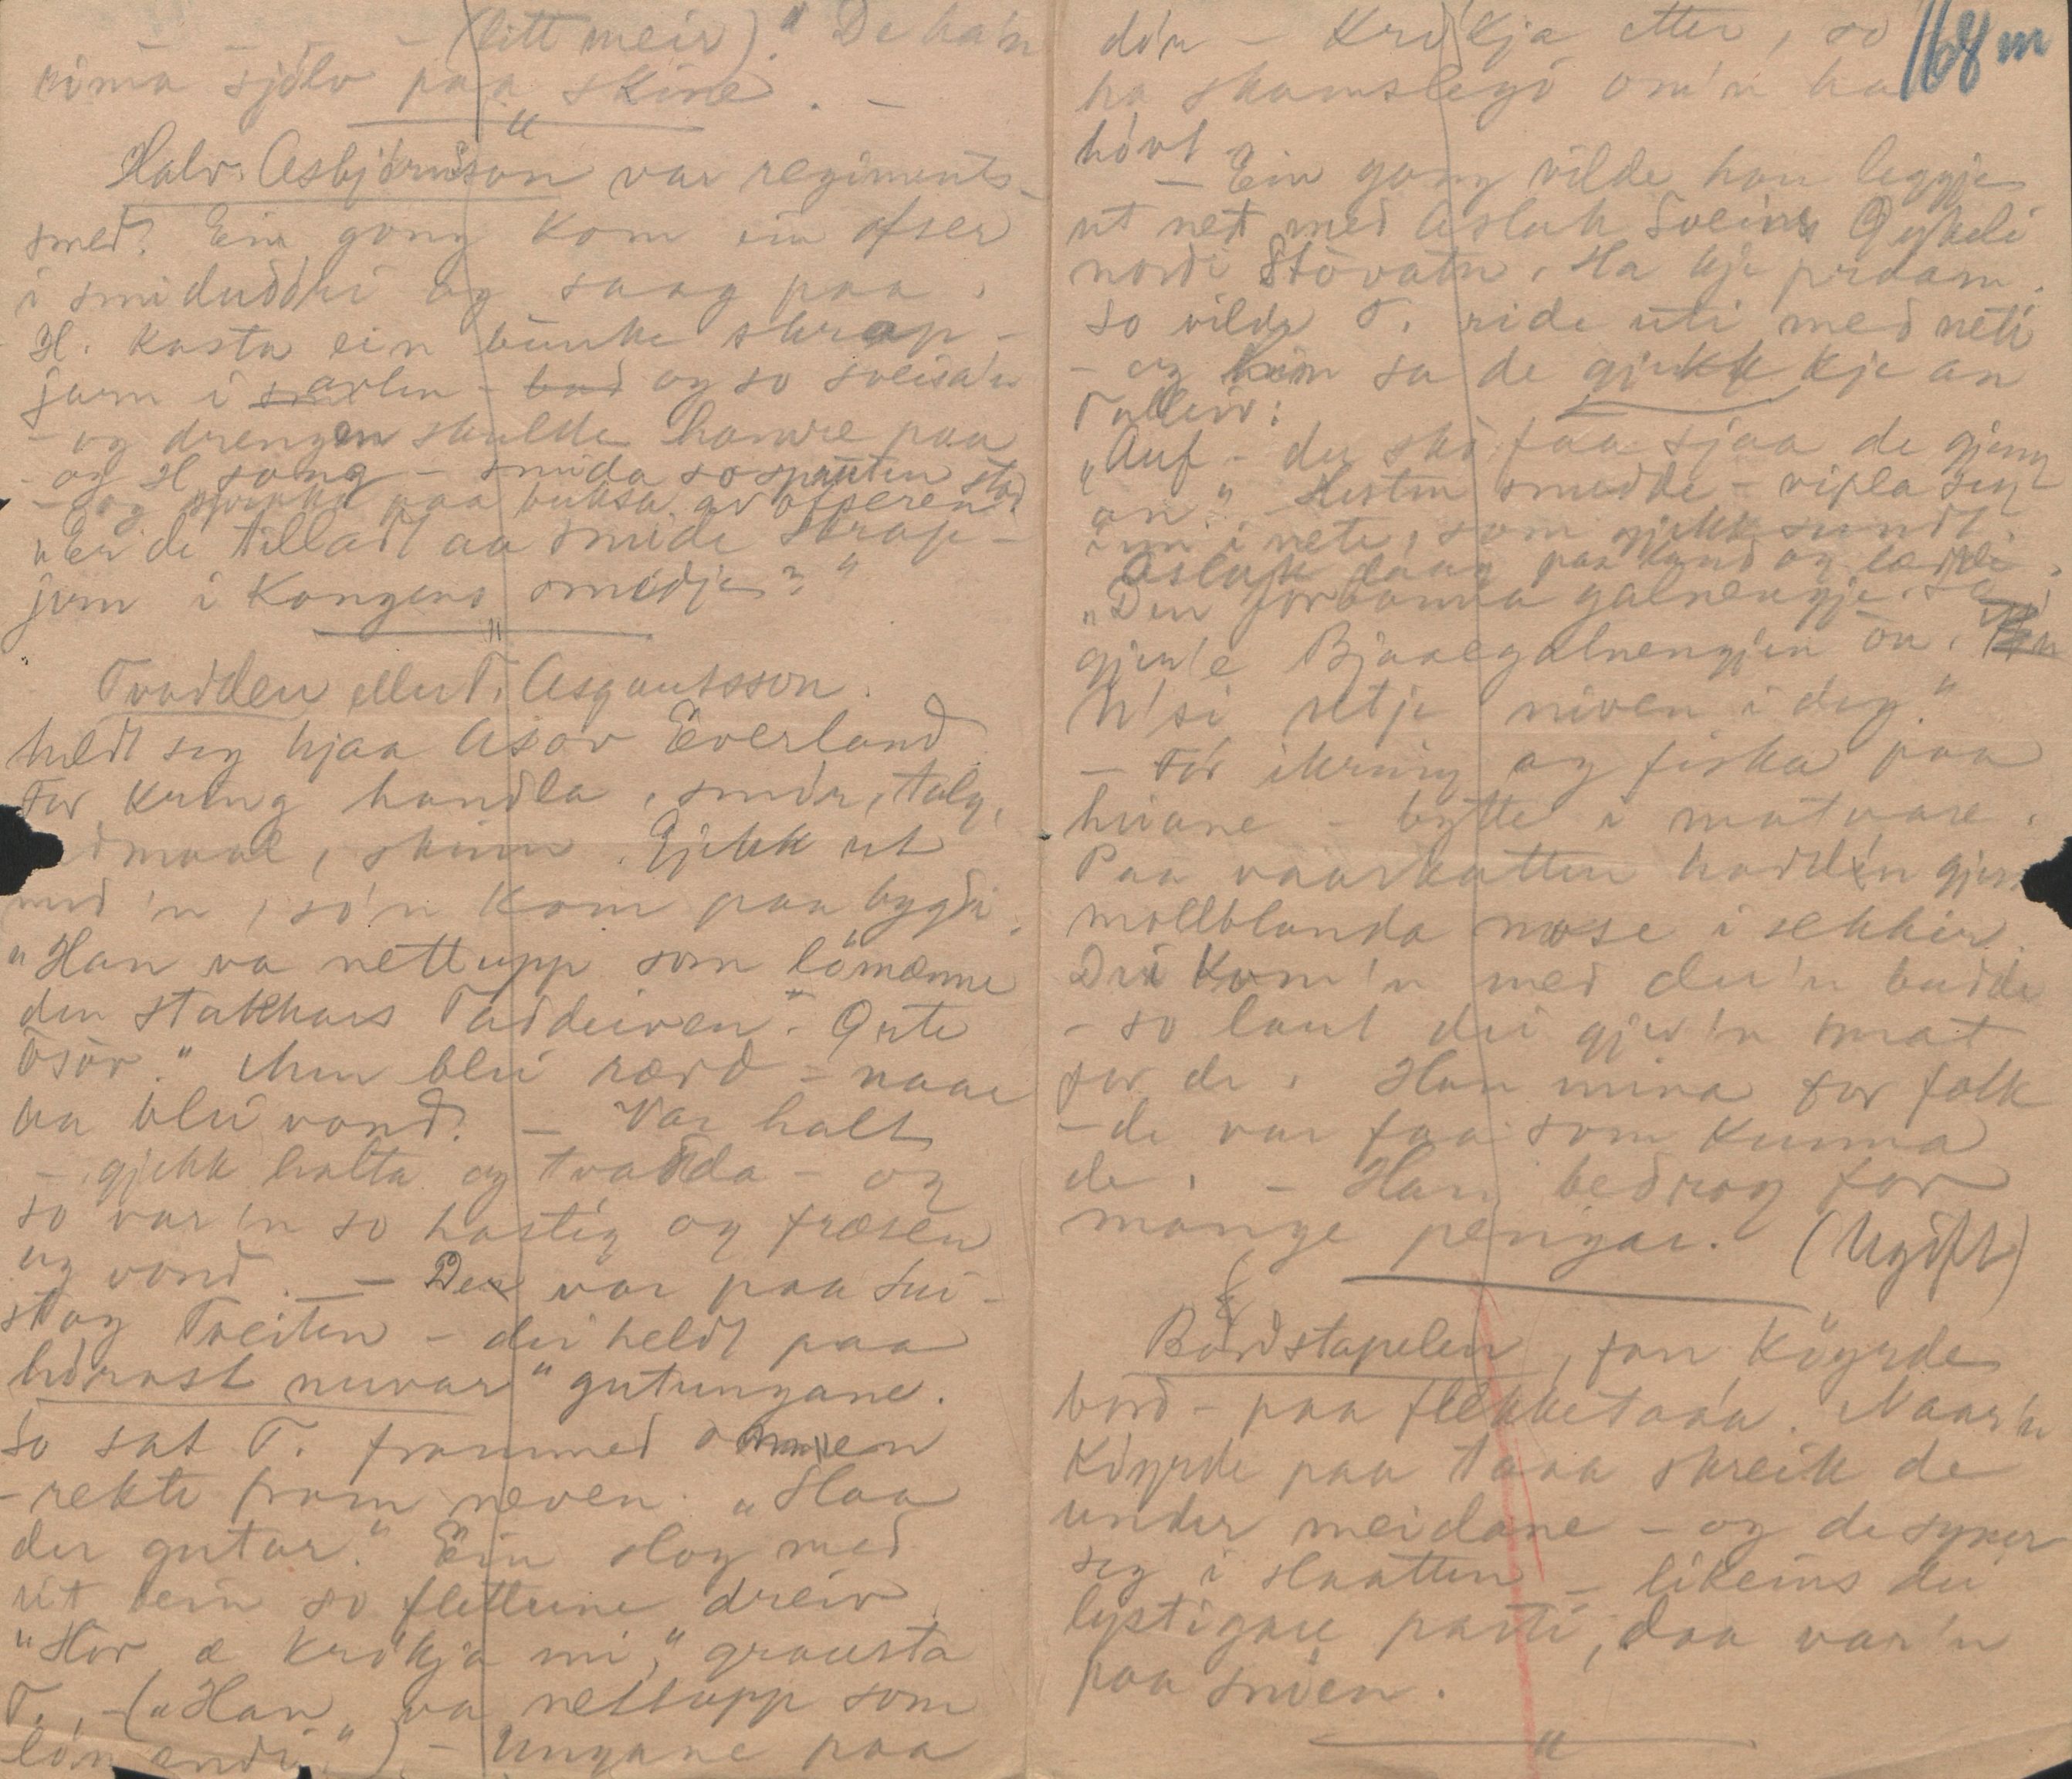 (litt meir)." De ha'n
koma sjölv paa skire. -
"
Halv. Asbjörnsson var regiments-
smed? Ein gong kom ein ofser
i smiduddri og saag paa.
H. kasta ein bunke skrap-
jarn i avlen - og so sveisa'n
- og drengen skulde hamre paa
- og H song - smida so sprutten stod
- og sprikka paa buksa av ofseren.
"Er de tilladt aa smide skrap-
jern i Kongens smidje?"
"
Tvadden eller T. Asgautsson.
heldt seg hjaa Asöv Everland
For kring handla, smör, talg,
dmaal, skinn. Gjekk ut
med 'n, so'n kom paa bygdi.
"Han va nettupp som lömenne
den stakkars Taddeiven". Gute
Osöv." Men blei rædd - naar
aa blei vond? - Var halt
- gjekk halta og tvadda - og
so var'n so hastig og fræsen
og vond. - Der var paa Sui-
stog Tveiten - dei heldt paa
hörast nuvar" gutungane.
So sat T. frammed omnen
- rekte fram neven. "Slaa
der gutar." Ein slog med
eit bein so fletterne dreiv.
"Hör æ krökja mi," grausta
T. - ("Han va nettupp som
lömendi") - Ungane paa
dön - Krökja etter, so
ha skamslegö om'n ha
hövt
168 m
- Ein gong vilde han leggje
ut net med Aslak Sveins Gyskeli
nordi Stövatn. Ha kje praam.
So vilde T. ride uti med neti
- og han sa de gjekk kje an
Talleiv:
"Auf - du ska faa sjaa de gjeng
an." Hesten snudde - vipla seg
inn i nete, som gjekk sundt.
Aslak laag paa land og lædde.
"Den forbanna galnengje. Se
gjente Bjaaegalnengjen on.
H'si sitje niven i deg."
- För ikring og fiska paa
hiiane - bytte i matvare.
Paa vaarkatten hadd'n gjer
mollblanda mose i sekkir.
Dei kom'n med der'n budde
- so laut dei gjev'n mat
for de. Han mina for folk
- de var faa som kunna
de. - Han bedrog for
mange pengar. (Ugift)
Bordstapelen, fan köyrde
bord - paa flekketaa'a. Naar'n
köyrde paa taaa skreik de
under meidane - og de syner
seg i slaatten - likeins dei
lystigare parti, daa var'n
paa snöen.
"